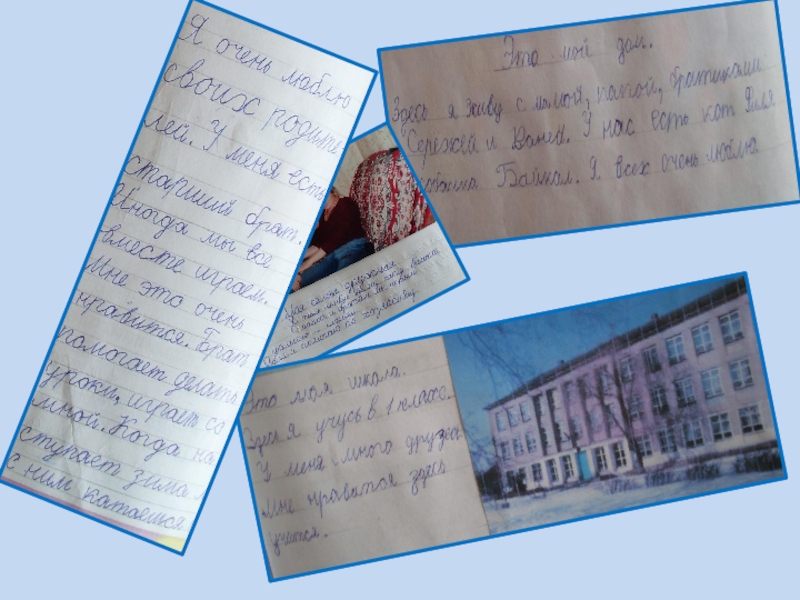 Я очень люблю
своих родите
лей. У меня есть
старший брат.
Иногда мы все
вместе играем.
Мне это очень
нравится. Брат
помогает делать
уроки, играет со
мной. Когда на
ступает зима
с ним катаемся
Это мой дом.
Здесь я живу с мамой, папой, братиками
Сережей и Ваней. У нас есть кот Филя
собака Байкал. Я всех очень люблю
дружная
Это моя школа.
Здесь я учусь в 1 классе.
У меня много друзей
Мне нравится здесь
учится.